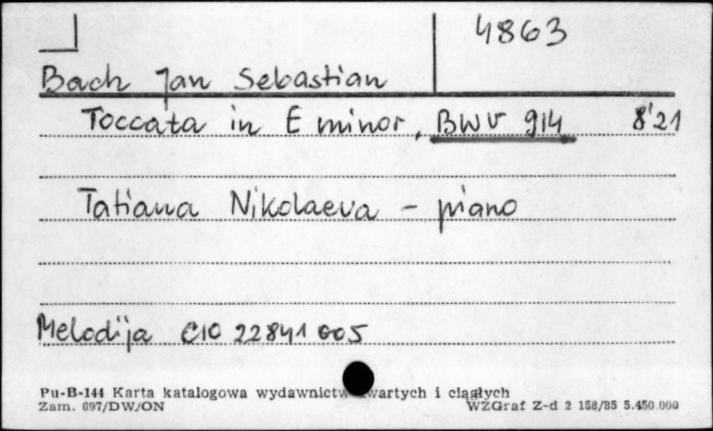 4863
Bach Jan Sebastian
Toccata in E minor, BWV 914 8'21
Tatiana Nikolaeva - piano
Melodija C10 22841 005
Pu-B-144 Karta katalogowa wydawnictw zwartych i ciągłych
Zam. 697/DW/ON WZGraf Z-d 2 158/85 5.450.000